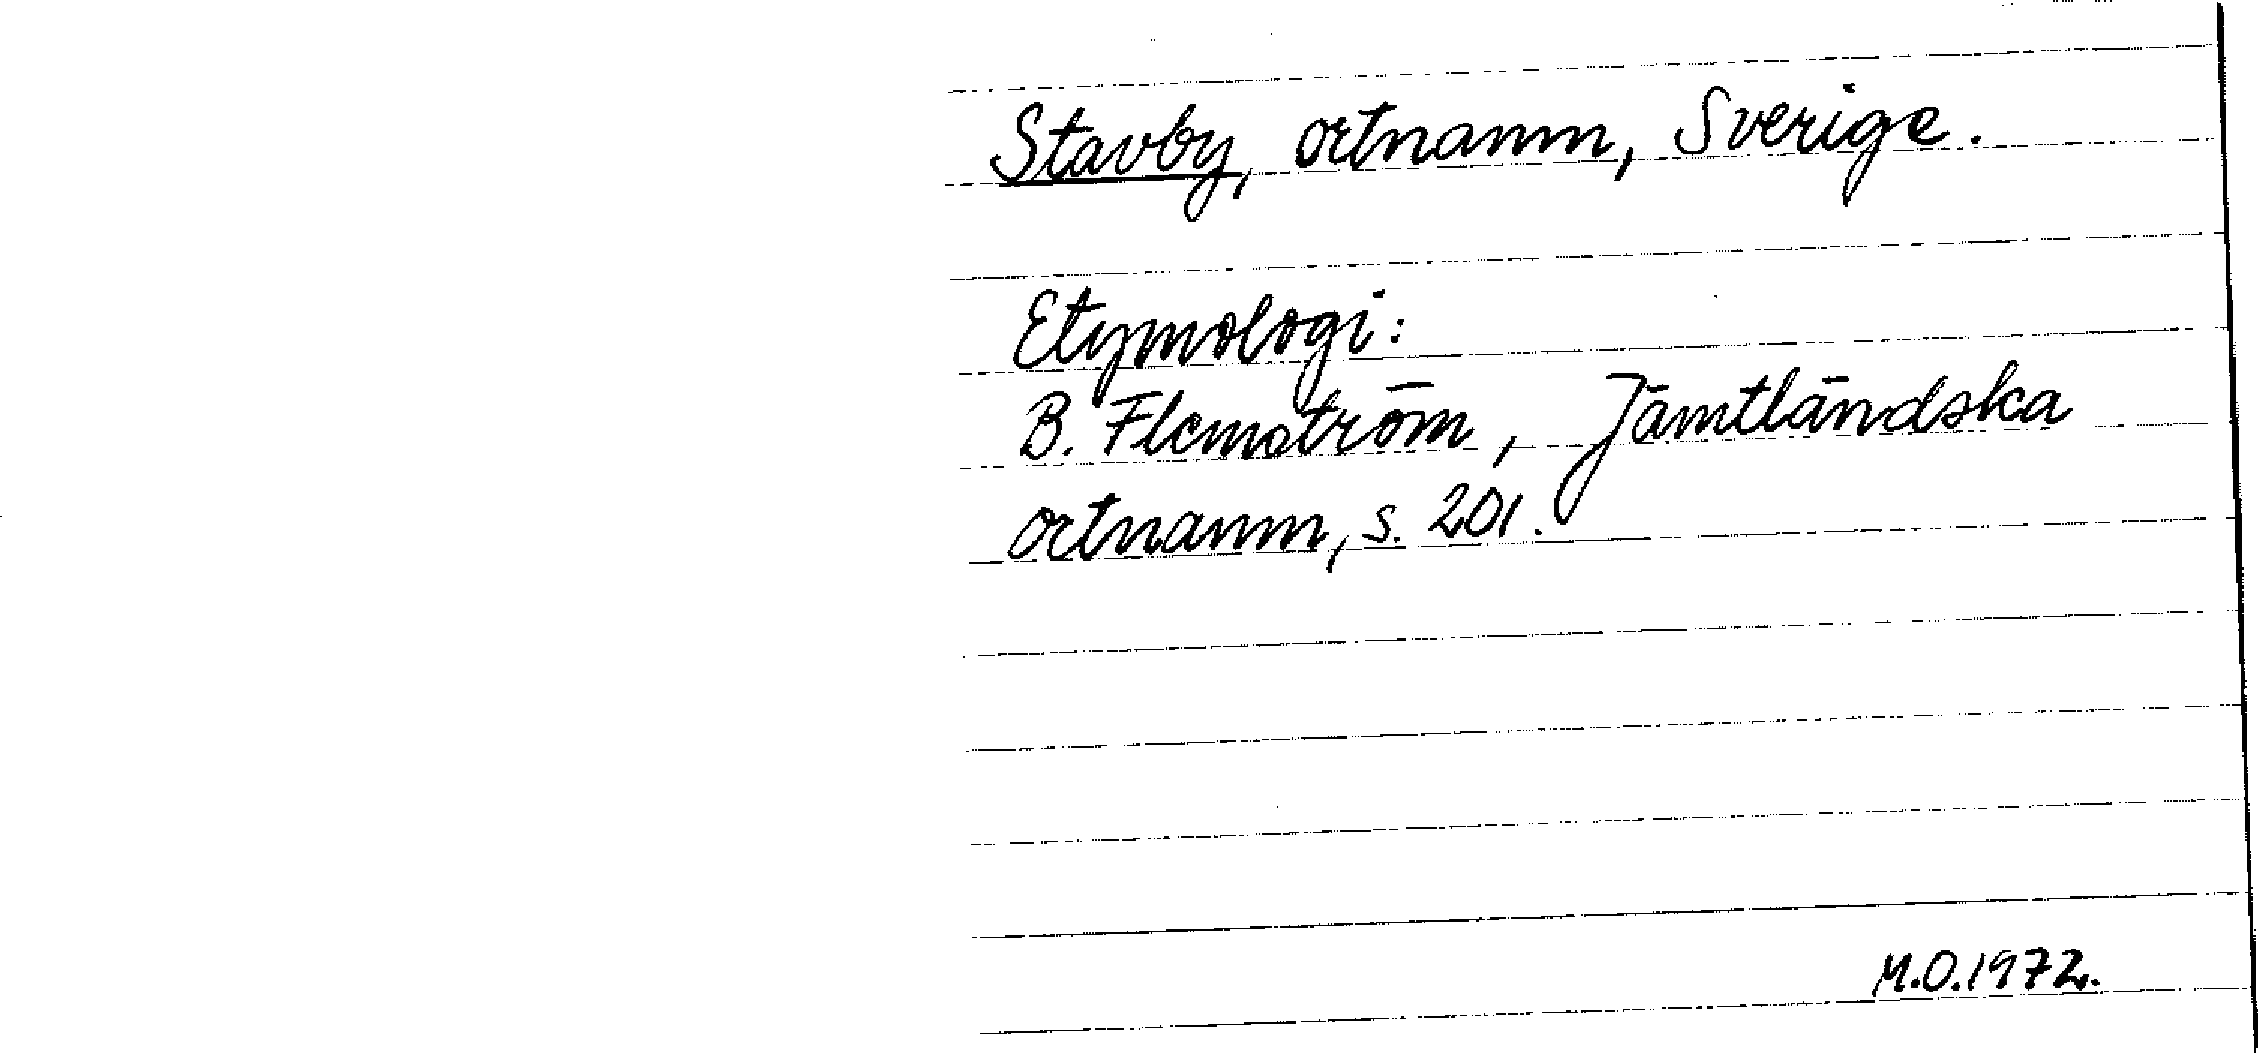 Stavby, ortnamn, Sverige.
Etymologi:
B. Flemström, Jämtländska
ortnamn, s. 201.
M.O.1972.